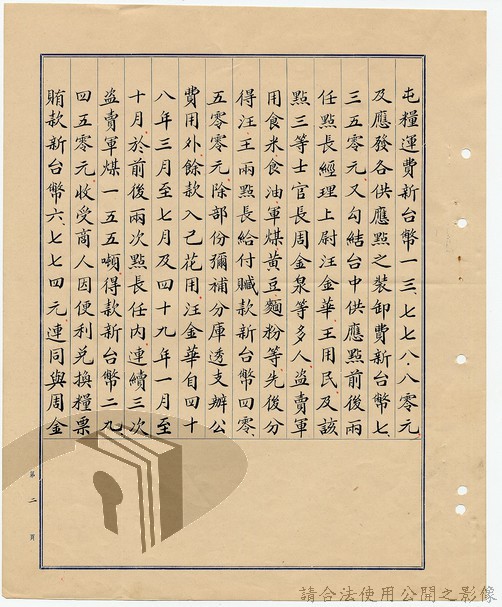 屯糧運費新台幣一三、七七八·八零元
及應發各供應點之裝卸費新台幣七、
三五零元又勾結台中供應點前後兩
任點長經理上尉汪金華王用民及該
點三等士官長周金泉等多人盜賣軍
用食米食油軍煤黃豆麵粉等先後分
得汪、王兩點長給付贓款新台幣四零、
五零零元除部份彌補分庫透支辦公
費用外餘款入己花用汪金華自四十
八年三月至七月及四十九年一月至
十月於前後兩次點長任內連續三次
盜賣軍煤一五五噸得款新台幣二九、
四五零元收受商人因便利兌換糧票
賄款新台幣六、七七四元連同與周金
第二頁
請合法使用公開之影像